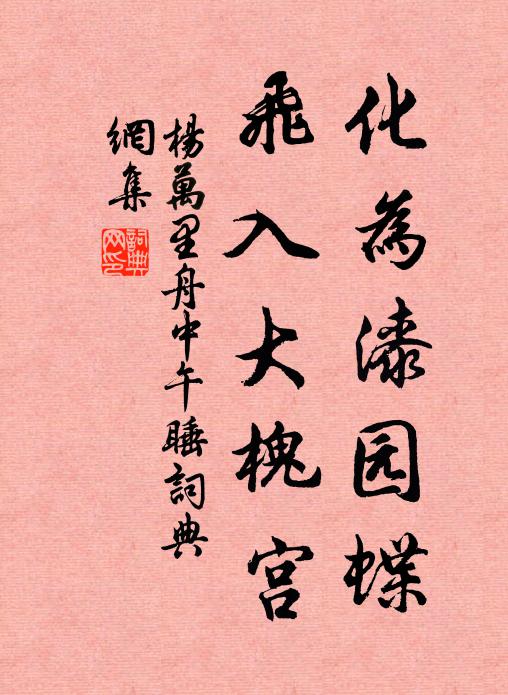 化為漆园蝶
飛入大槐宫
楊萬里舟中午睡詞典
網集
詞典
网印